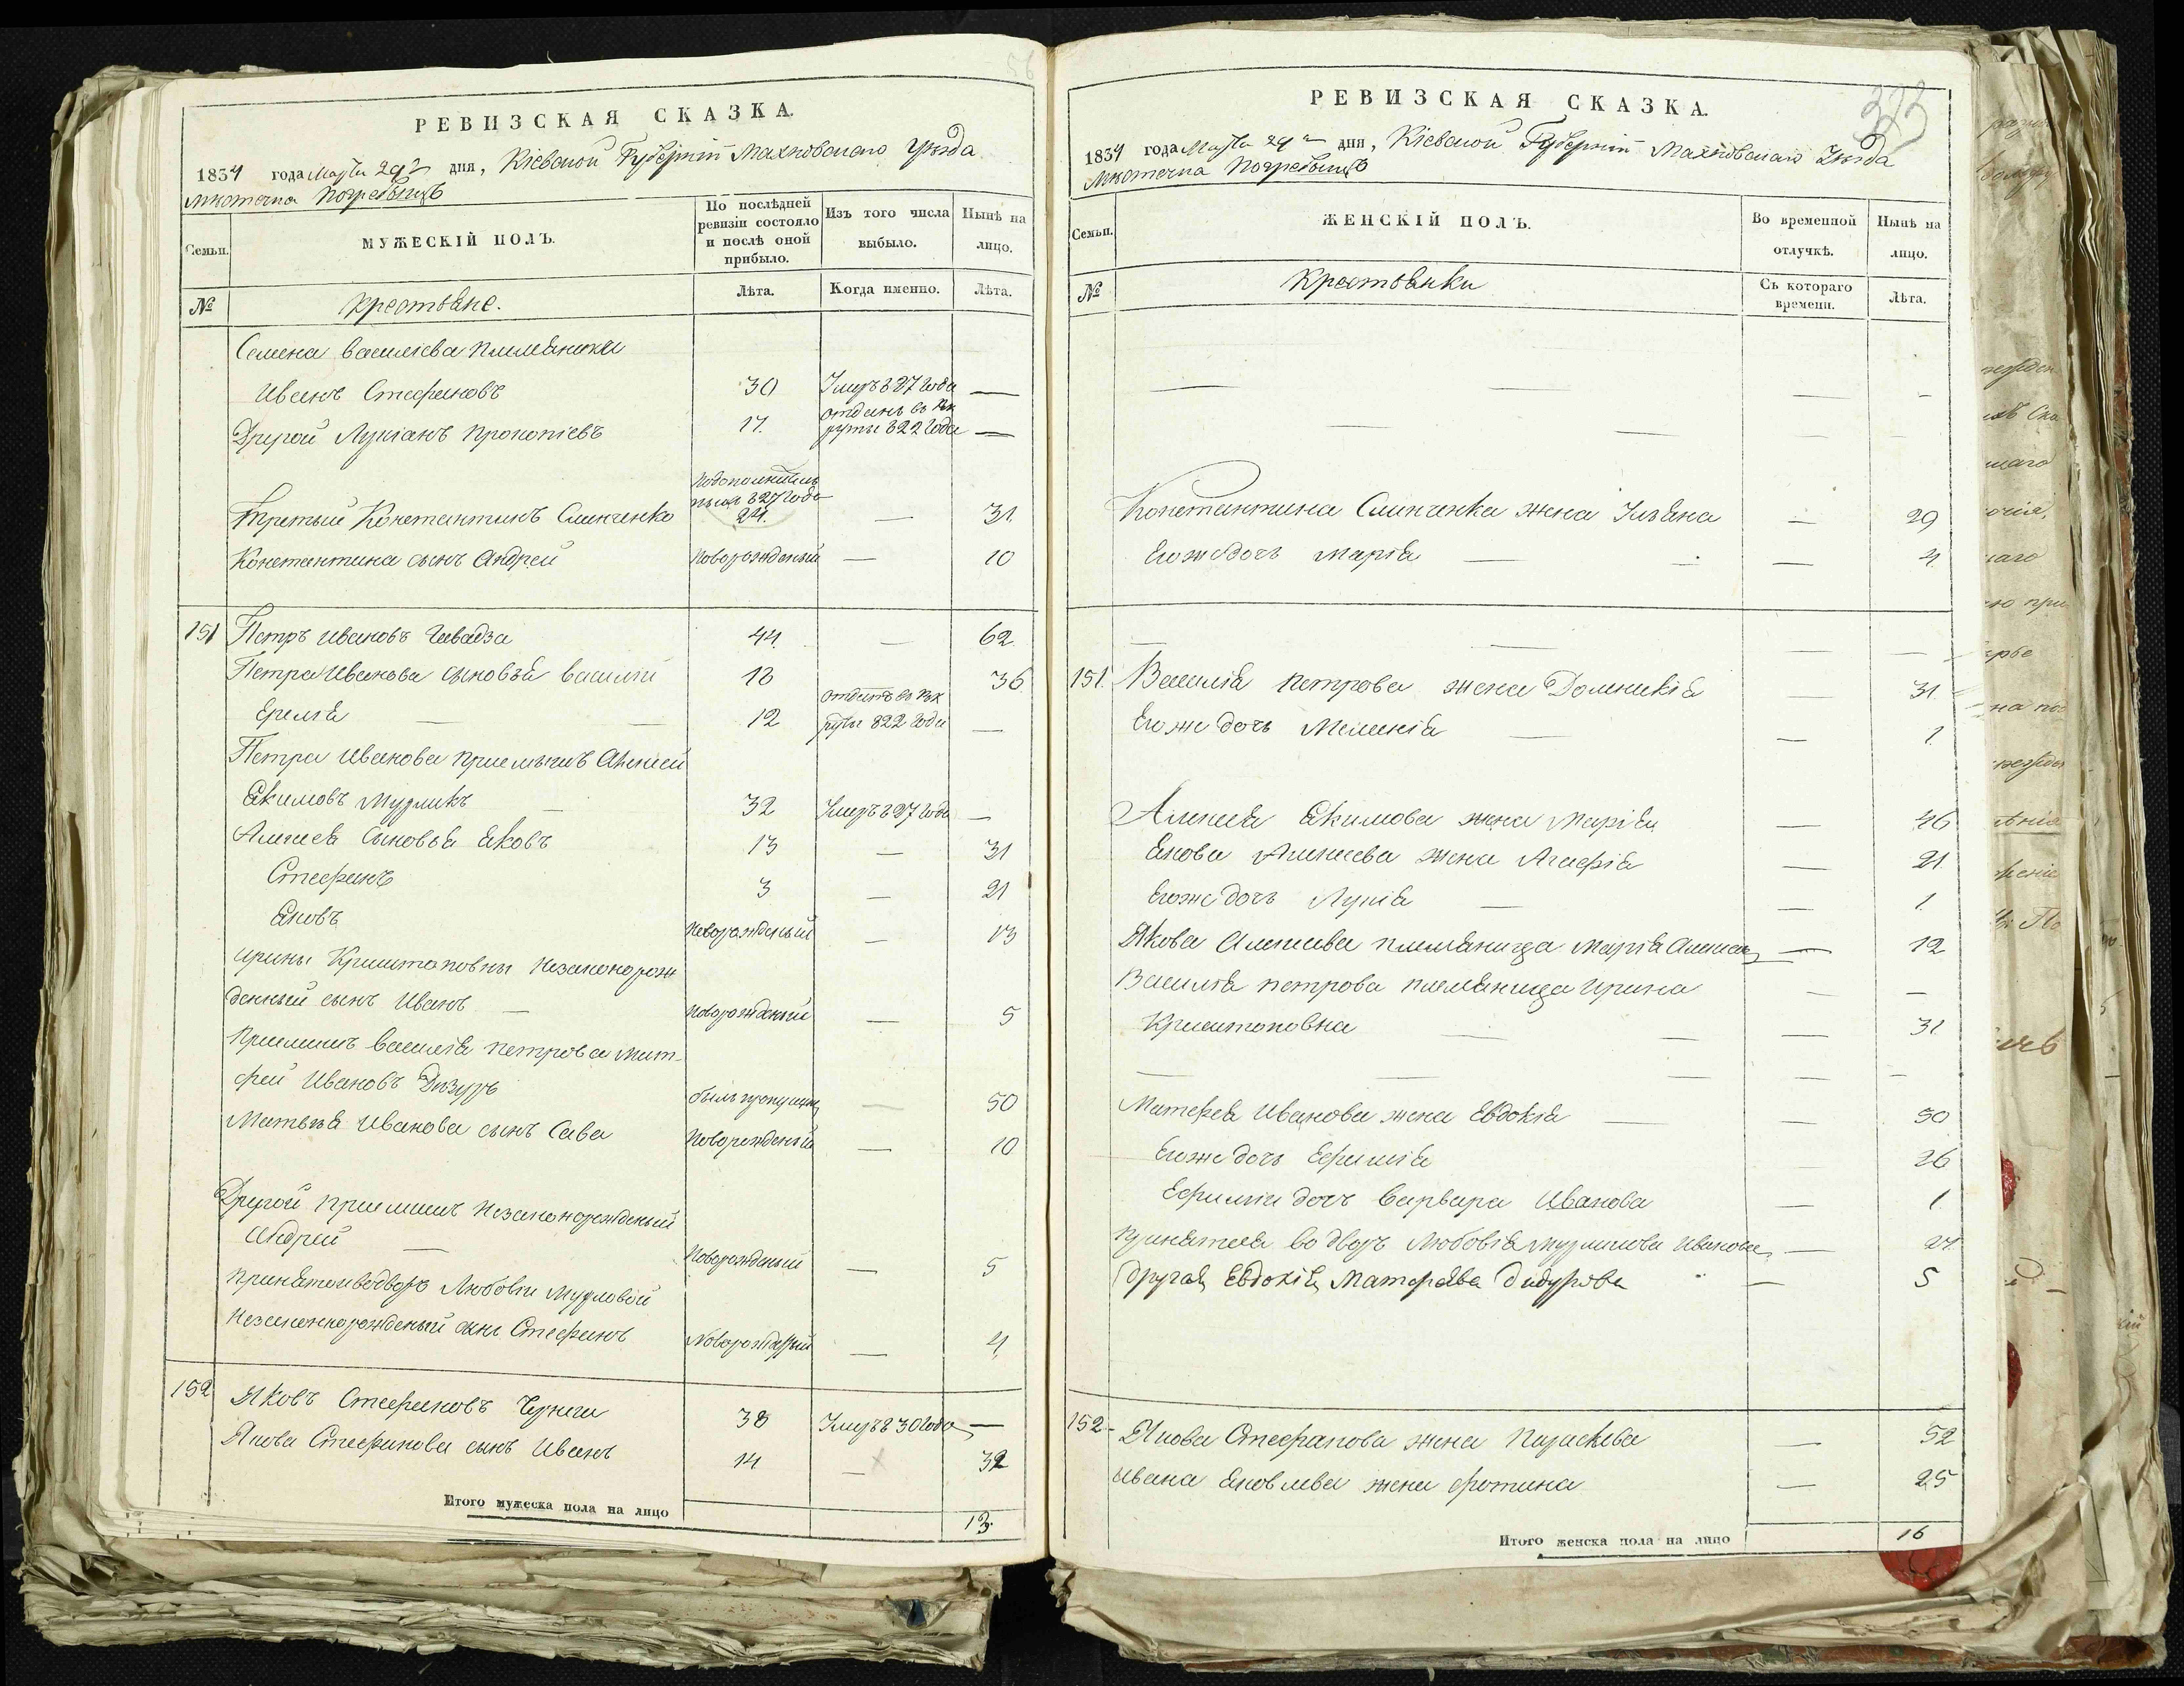 56
РЕВИЗСКАЯ СКАЗКА.
1834 года Марта 29го дня, Кіевской Губерніи Махновскаго Уѣзда
Мѣстечка Погребищъ
Семьи.
МУЖЕСКІЙ ПОЛЪ.
По послѣдней ревизіи состояло и послѣ оной прибыло.
Изъ того числа выбыло.
Нынѣ на лицо.
№
Крестьяне.
Лѣта.
Когда именно.
Лѣта.
Семена Василіева племянники
Иванъ Стефановъ 30 Умеръ 827 года —
Другой Лукіанъ Прокопіевъ 17. отданъ въ рекруты 822 года —
Третый Константинъ 24. — 31
Константина сынъ Андрей Новорожденый — 10
151 Петръ Ивановъ 44. — 62
Петра Иванова сыновья Василій 18 36
— — 12 отданъ въ рекруты 822 года —
Петра Иванова приемышъ Алексей
Якимовъ Мурликъ — 32 Умеръ 827 года —
Алексея сыновья Яковъ 13 — 31
Стефанъ 3 — 21
Яковъ Новорожденый — 13
Ирины Криштоповны незаконорож
денный сынъ Иванъ — Новорожденый — 5
Приемышъ Василія Петрова Мат-
фей Ивановъ был пропущен — 50
Матвея Иванова сынъ Сава Новорожденый — 10
Другой приемышъ незаконорожденый
Андрей — Новорожденый — 5
Принятой во дворъ Любовіи
Незаконнорожденый сынъ Стефанъ Новорожденый — 4
152 Яковъ Стефановъ 38 Умеръ 830 года —
Якова Стефанова сынъ Иванъ 14 — 32
Итого мужеска пола на лицо 13.
323
РЕВИЗСКАЯ СКАЗКА.
1834 года Марта 29го дня, Кіевской Губерніи Махновскаго Уѣзда
Мѣстечка Погребищъ
Семьи.
ЖЕНСКІЙ ПОЛЪ.
Во временной отлучкѣ.
Нынѣ на лицо.
№
Крестьянки
Съ котораго времени.
Лѣта.
Константина жена Ульяна — 29
Егоже дочь Марія — — 4
151. Василія Петрова жена Домникія — 31
Егоже дочь Меланія — — 1
Алексея Якимова жена Марія — 46
Якова Алексеева жена Агафія — 21
Егоже дочь Лукія — — 1
Якова Алексеева племяница Марія — 12
Василія Петрова племяница Ирина — —
Криштоповна — — — 31
Матфея Иванова жена Евдокія — — 50
Егоже дочь Ефимія 26
Ефиміи дочь Варвара Иванова — 1
Принятая во дворъ Любовія Иванова — 24
Другая Евдокія Матфеева — 5
152- Якова Стефанова жена Параскева — 52
Ивана Яковлева жена Фотина — 25
Итого женска пола на лицо 16